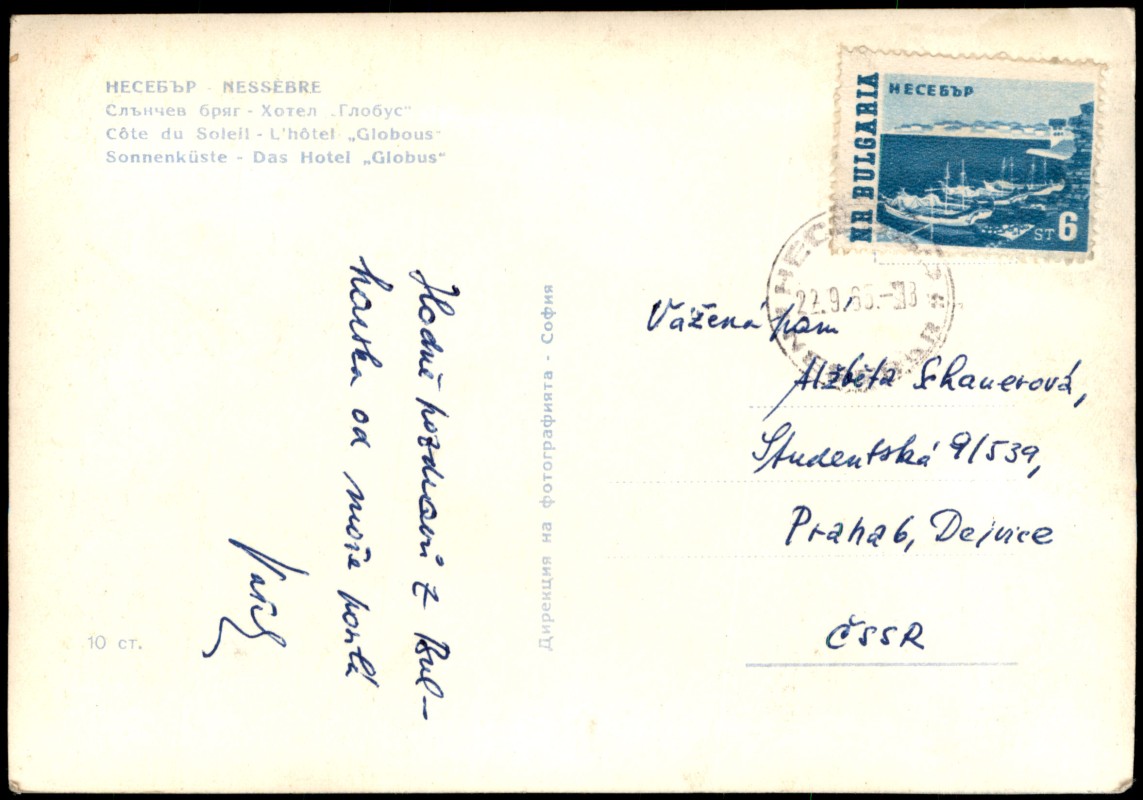 НЕСЕБЪР - NESSÈBRE
Слънчев бряг - Хотел „Глобус“
Côte du Soleil - L'hôtel „Globous“
Sonnenküste - Das Hotel „Globus“
НЕСЕБЪР
NR BULGARIA
ST 6
22.9.65.-
Hodně pozdravů z Bul-
harska od moře posílá
Vašek
Дирекция на фотографията - София
Vážená paní
Alžběta Schauerová,
Studentská 9/539,
Praha 6, Dejvice
ČSSR
10 ст.